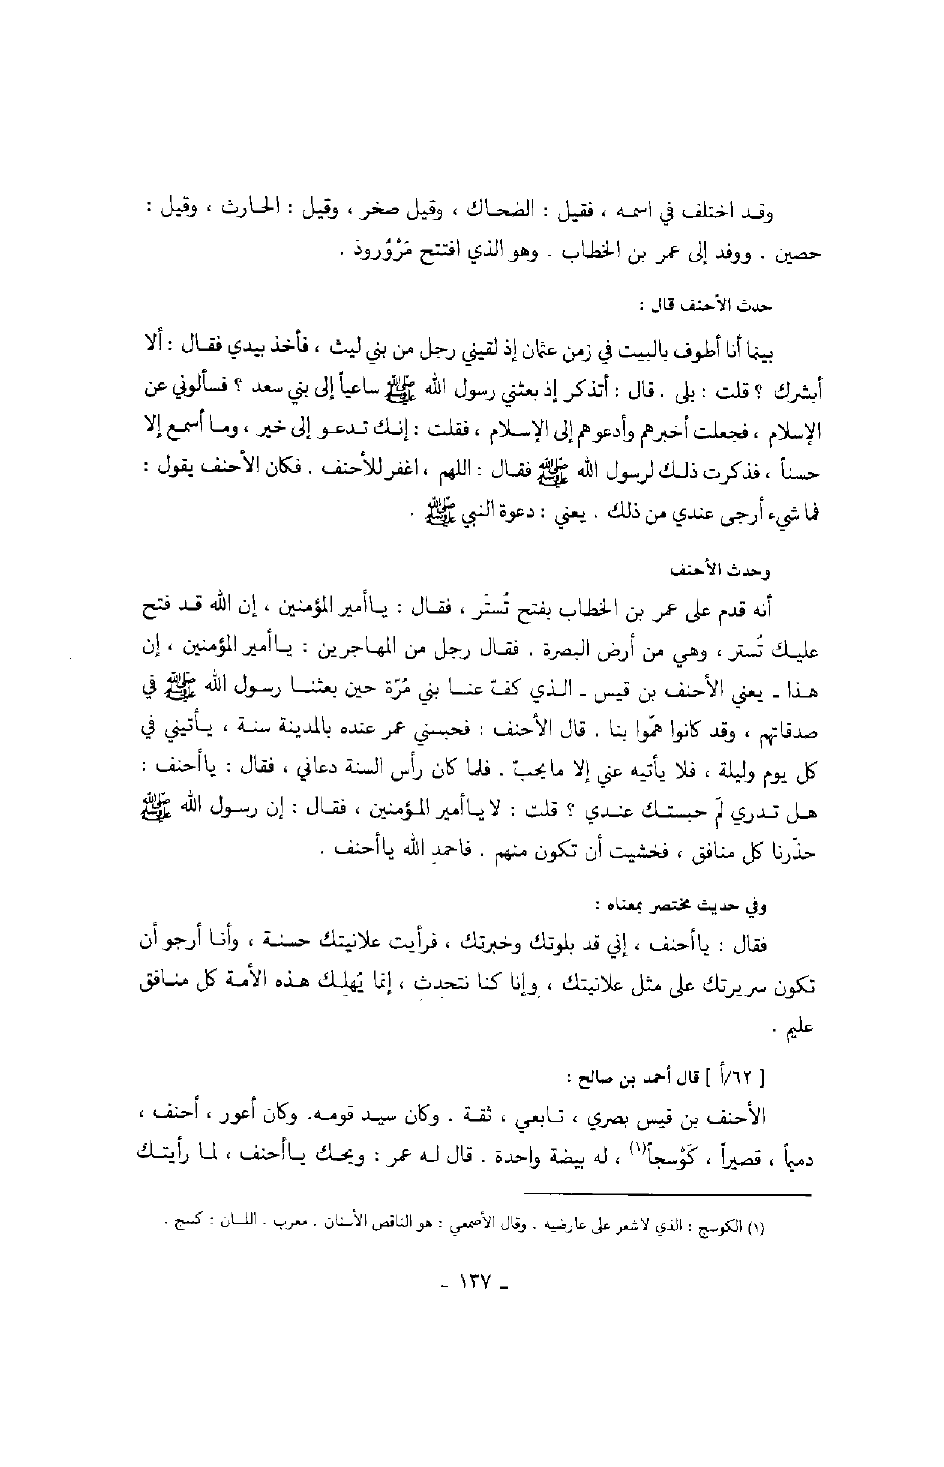 وقد اختلف في اسمه ، فقيل : الضحاك ، وقيل صخر ، وقيل : الحارث ، وقيل :
حصين . ووفد إلى عمر بن الخطاب . وهو الذي افتتح مَرْوُروذ .
حدث الأحنف قال :
بينما أنا أطوف بالبيت في زمن عثمان إذ لقيني رجل من بني ليث ، فأخذ بيدي فقال : ألا
أبشرك ؟ قلت : بلى . قال : أتذكر إذ بعثني رسول الله ﷺ ساعياً إلى بني سعد ؟ فسألوني عن
الإسلام ، فجعلت أخبرهم وأدعوهم إلى الإسلام ، فقلت : إنك تدعو إلى خير ، وما أسمع إلا
حسناً ، فذكرت ذلك لرسول الله ﷺ فقال : اللهم ، اغفر للأحنف . فكان الأحنف يقول :
فما شيء أرجى عندي من ذلك . يعني : دعوة النبي ﷺ .
وحدث الأحنف
أنه قدم على عمر بن الخطاب بفتح تُستَر ، فقال : ياأمير المؤمنين ، إن الله قد فتح
عليك تُستر ، وهي من أرض البصرة . فقال رجل من المهاجرين : ياأمير المؤمنين ، إن
هذا - يعني الأحنف بن قيس - الذي كفّ عنا بني مُرّة حين بعثنا رسول الله ﷺ في
صدقاتهم ، وقد كانوا همّوا بنا . قال الأحنف : فحبسني عمر عنده بالمدينة سنة ، يأتيني في
كل يوم وليلة ، فلا يأتيه عني إلا مايحبّ . فلما كان رأس السنة دعاني ، فقال : ياأحنف :
هل تدري لمَ حبستك عندي ؟ قلت : لا ياأمير المؤمنين ، فقال : إن رسول الله ﷺ
حذّرنا كل منافق ، فخشيت أن تكون منهم . فاحمد الله ياأحنف .
وفي حديث مختصر بمعناه :
فقال : ياأحنف ، إني قد بلوتك وخبرتك ، فرأيت علانيتك حسنة ، وأنا أرجو أن
تكون سريرتك على مثل علانيتك ، وإنا كنا نتحدث ، إنما يُهلِك هذه الأمة كل منافق
عليم .
[ ٦٢/أ ] قال أحمد بن صالح :
الأحنف بن قيس بصري ، تابعي ، ثقة . وكان سيد قومه. وكان أعور ، أحنف ،
دميماً ، قصيراً ، كَوْسجاً(١) ، له بيضة واحدة . قال له عمر : ويحك ياأحنف ، لما رأيتك
(١) الكوسج : الذي لاشعر على عارضيه . وقال الأصمعي : هو الناقص الأسنان . معرب . اللسان : كسج .
- ١٣٧ -